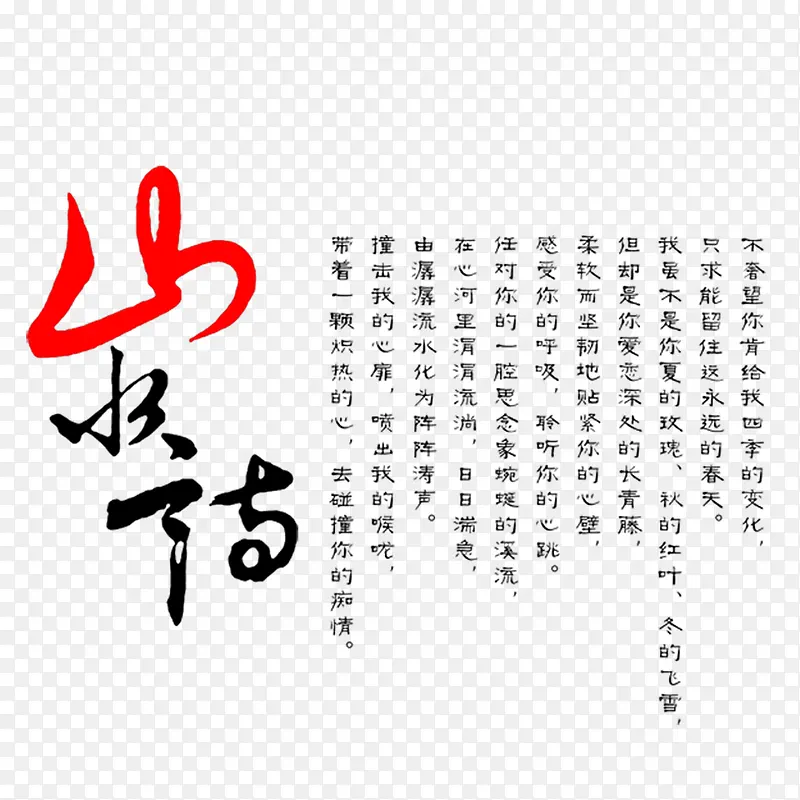 山水诗
不奢望你肯给我四季的变化，
只求能留住远永远的春天。
我虽不是你夏的玫瑰、秋的红叶、冬的飞雪，
但却是你爱恋深处的长青藤，
柔软而坚韧地贴紧你的心壁，
感爱你的呼吸，聆听你的心跳。
任对你的一腔思念象蜿蜒的溪流，
在心河里涓涓流淌，日日湍急，
由潺潺流水化为阵阵涛声。
撞击我的心扉，喷出我的喉咙，
带着一颗炽热的心，去碰撞你的痴情。